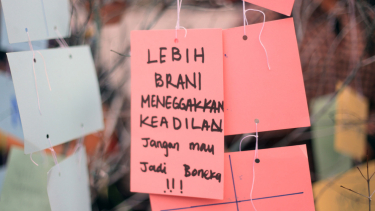 LEBIH
BRANI
MENEGGAKKAN
KEADILAN
Jangan mau
Jadi Boneka
!!!